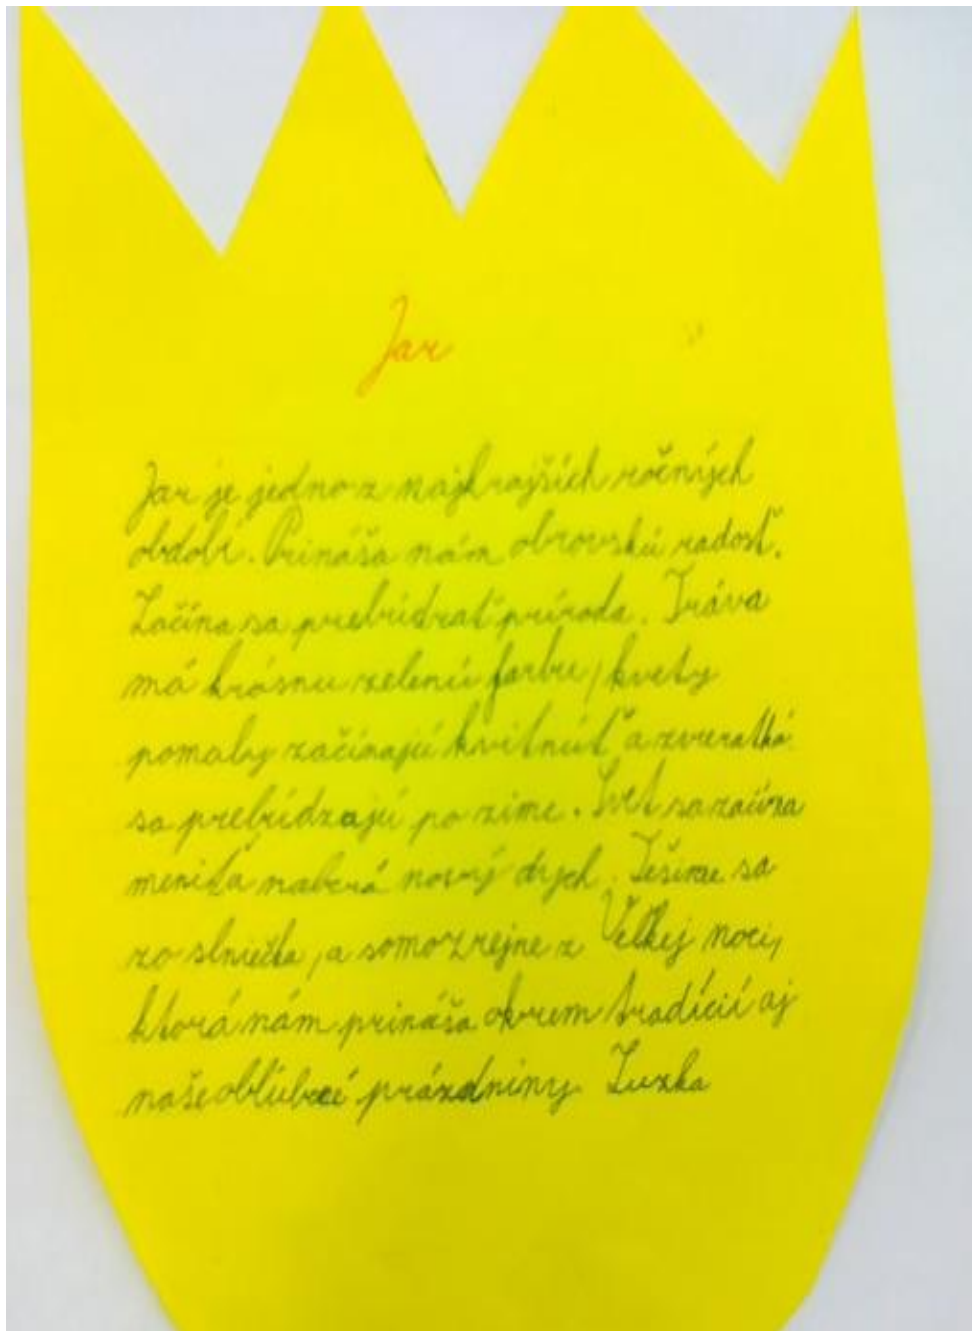 Jar
Jar je jedno z najkrajších ročných
období. Prináša nám obrovskú radosť.
Začína sa prebúdzať príroda. Tráva
má krásnu zelenú farbu, kvety
pomaly začínajú kvitnúť a zvieratká
sa prebúdzajú po zime. Svet sa začína
meniť a naberá nový dych. Tešíme sa
zo slniečka, a samozrejme z Veľkej noci,
ktorá nám prináša okrem tradícií aj
naše obľúbené prázdniny. Zuzka